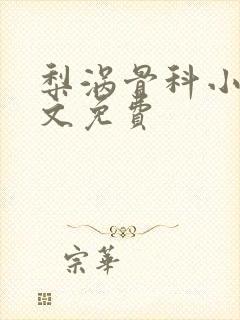 梨涡骨科小
文免費
宗華